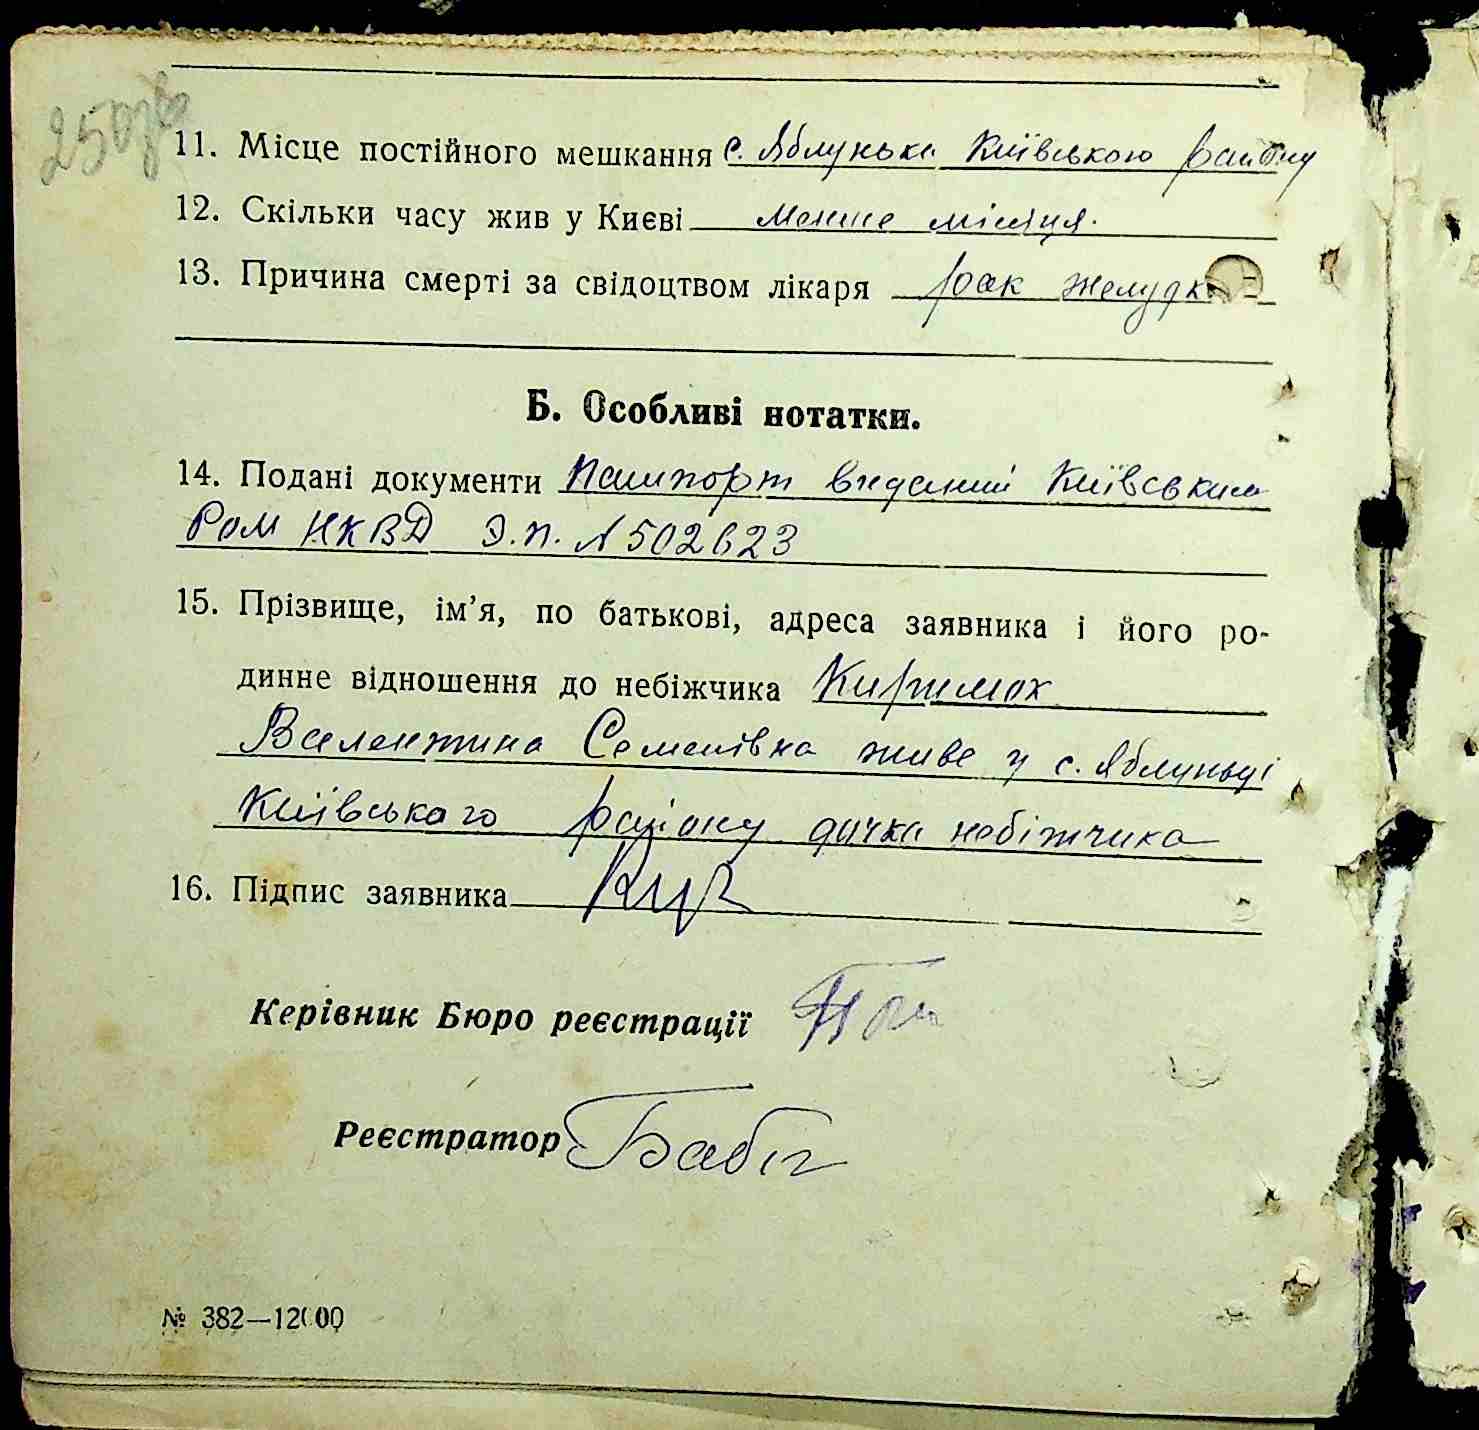 250зв
11. Місце постійного мешкання с. Яблунька Київською району
12. Скільки часу жив у Києві менше місяця.
13. Причина смерті за свідоцтвом лікаря рак желудка
Б. Особливі нотатки.
14. Подані документи Пашпорт виданий Київським
Ром НКВД Э.П. № 502623
15. Прізвище, ім'я, по батькові, адреса заявника і його ро-
динне відношення до небіжчика
Валентина Семенівна живе у с. Яблуньці
Київського району дочка небіжчика
16. Підпис заявника
Керівник Бюро реєстрації
Реєстратор
№ 382—12000